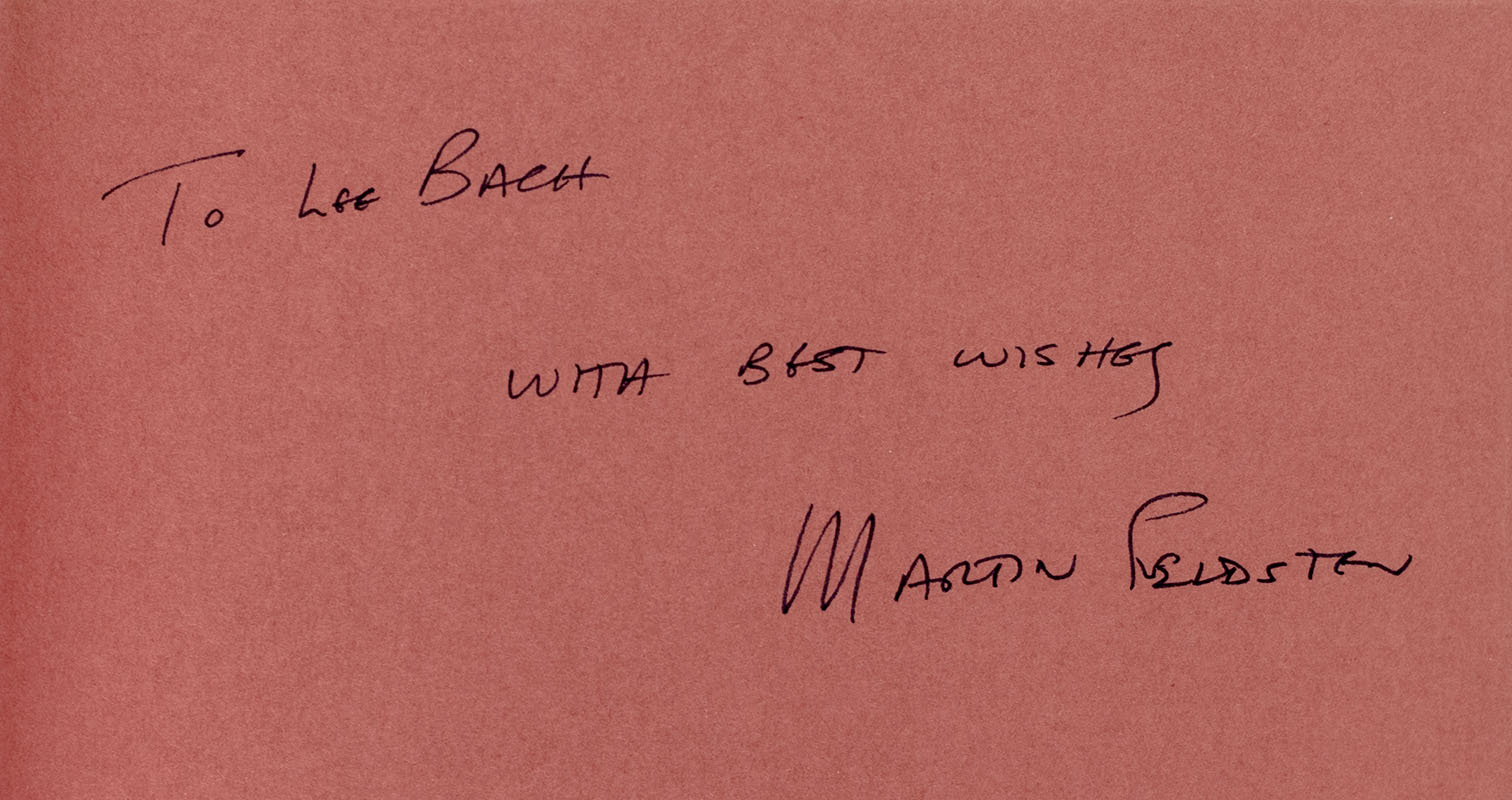 To Lee Bach
with best wishes
Martin Feldstein